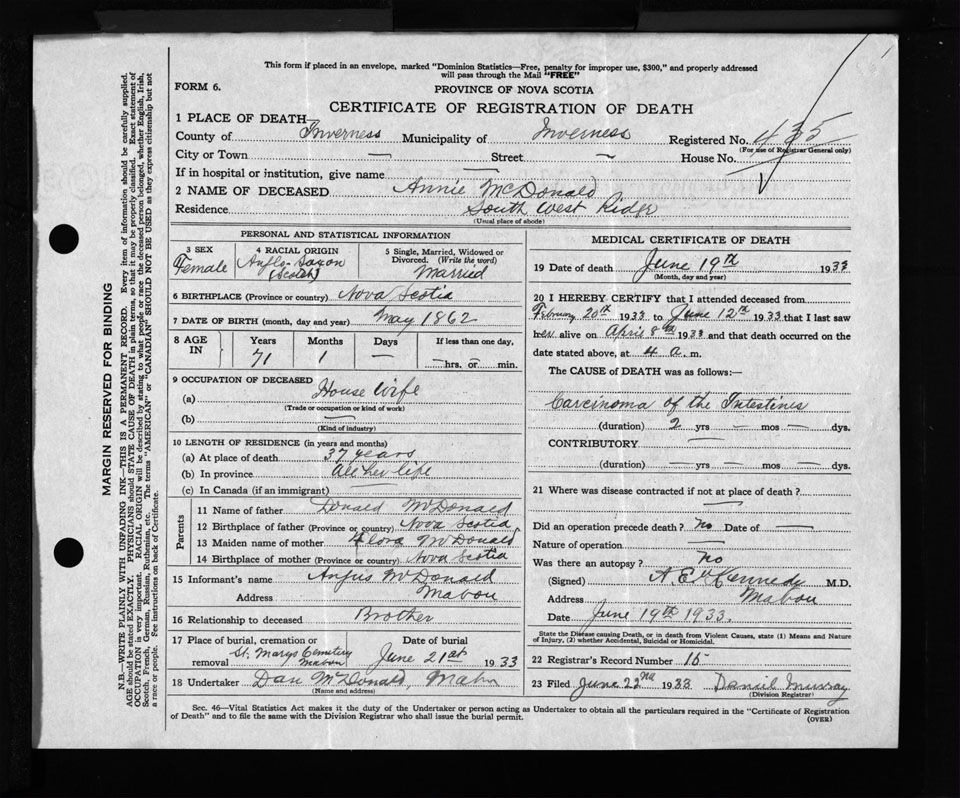 This form if placed in an envelope, marked "Dominion Statistics—Free, penalty for improper use, $300," and properly addressed
will pass through the Mail "FREE"
FORM 6.
PROVINCE OF NOVA SCOTIA
CERTIFICATE OF REGISTRATION OF DEATH
1 PLACE OF DEATH
County of Inverness Municipality of Inverness Registered No. 435
(For use of Registrar General only)
City or Town — Street — House No.
If in hospital or institution, give name —
2 NAME OF DECEASED Annie McDonald
Residence South West Ridge
(Usual place of abode)
PERSONAL AND STATISTICAL INFORMATION
3 SEX 4 RACIAL ORIGIN 5 Single, Married, Widowed or
Divorced. (Write the word)
Female Anglo-Saxon (Scotch) Married
6 BIRTHPLACE (Province or country) Nova Scotia
7 DATE OF BIRTH (month, day and year) May 1862
8 AGE IN Years Months Days If less than one day,
71 1 — — hrs. or — min.
9 OCCUPATION OF DECEASED
(a) House Wife
(Trade or occupation or kind of work)
(b) —
(Kind of industry)
10 LENGTH OF RESIDENCE (in years and months)
(a) At place of death 37 years
(b) In province All her life
(c) In Canada (if an immigrant) —
Parents
11 Name of father Donald McDonald
12 Birthplace of father (Province or country) Nova Scotia
13 Maiden name of mother Flora McDonald
14 Birthplace of mother (Province or country) Nova Scotia
15 Informant's name Angus McDonald
Address Mabou
16 Relationship to deceased Brother
17 Place of burial, cremation or removal St. Marys Cemetery Mabou Date of burial June 21st 1933
18 Undertaker Dan McDonald, Mabou
(Name and address)
MEDICAL CERTIFICATE OF DEATH
19 Date of death June 19th 1933
(Month, day and year)
20 I HEREBY CERTIFY that I attended deceased from
February 20th 1933 to June 12th 1933 that I last saw
her alive on April 8th 1933 and that death occurred on the
date stated above, at 4 a. m.
The CAUSE of DEATH was as follows:—
Carcinoma of the Intestines
(duration) 2 yrs — mos — dys.
CONTRIBUTORY —
(duration) — yrs — mos — dys.
21 Where was disease contracted if not at place of death?
—
Did an operation precede death? no Date of —
Nature of operation —
Was there an autopsy? no
(Signed) Kennedy M.D.
Address Mabou
Date June 19th 1933.
State the Disease causing Death, or in death from Violent Causes, state (1) Means and Nature
of Injury, (2) whether Accidental, Suicidal or Homicidal.
22 Registrar's Record Number 15
23 Filed June 22nd 1933 Daniel Murray
(Division Registrar)
Sec. 46—Vital Statistics Act makes it the duty of the Undertaker or person acting as Undertaker to obtain all the particulars required in the "Certificate of Registration
of Death" and to file the same with the Division Registrar who shall issue the burial permit.
(OVER)
MARGIN RESERVED FOR BINDING
N.B.—WRITE PLAINLY WITH UNFADING INK—THIS IS A PERMANENT RECORD. Every item of information should be carefully supplied.
AGE should be stated EXACTLY. PHYSICIANS should STATE CAUSE OF DEATH in plain terms, so that it may be properly classified. Exact statement of
OCCUPATION is very important. RACIAL ORIGIN will be described by stating to what people or race the deceased person belonged, whether English, Irish,
Scotch, French, German, Russian, Ruthenian, etc. The terms "AMERICAN" or "CANADIAN" SHOULD NOT BE USED as they express citizenship but not
a race or people. See instructions on back of Certificate.